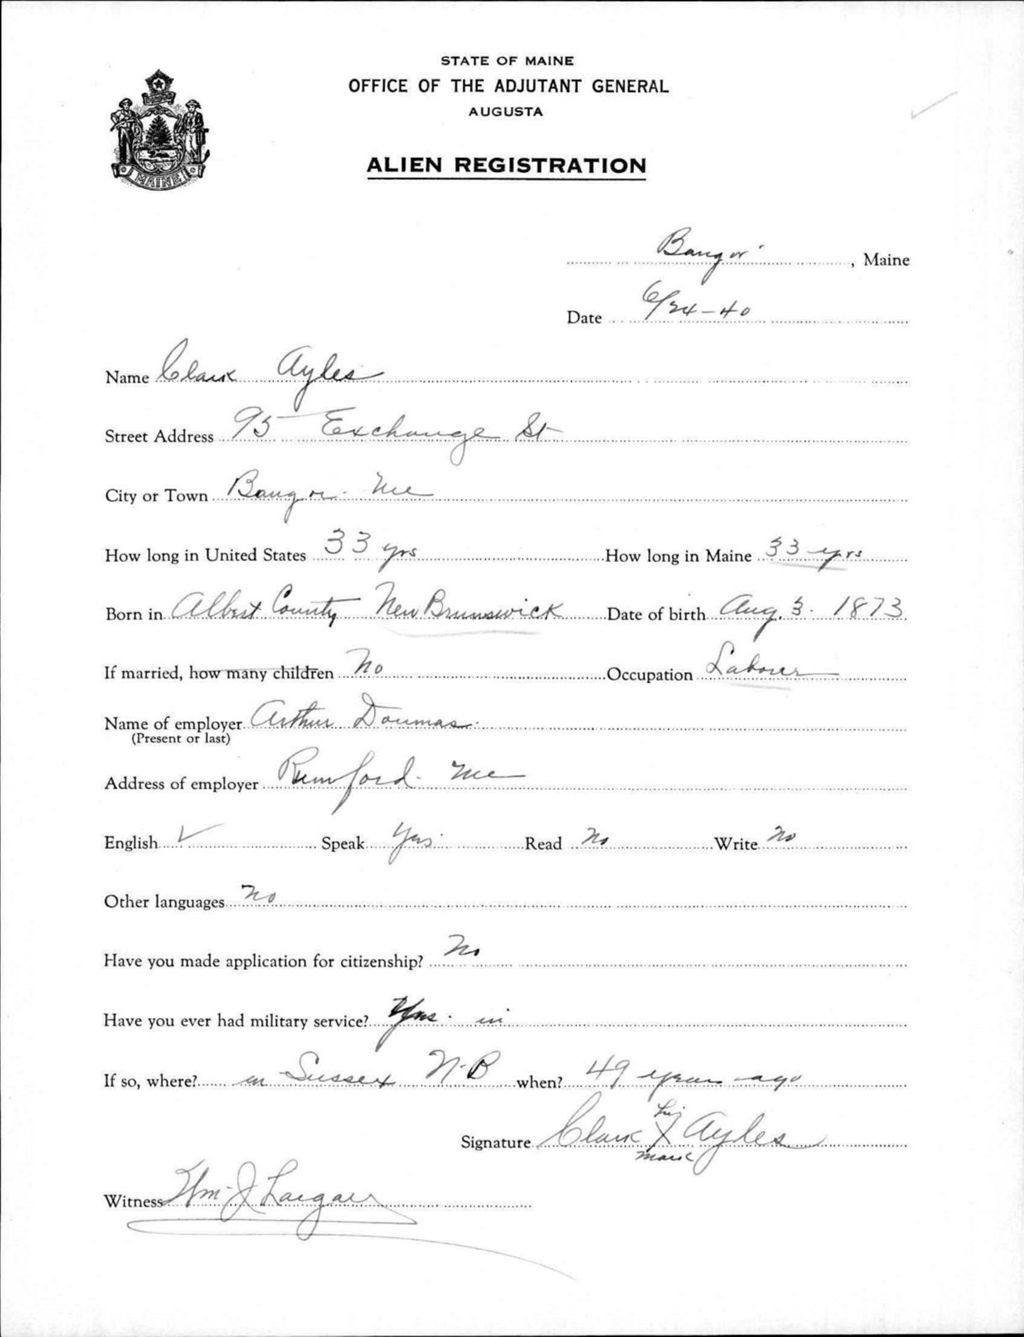 STATE OF MAINE
OFFICE OF THE ADJUTANT GENERAL
AUGUSTA
ALIEN REGISTRATION
MAINE
Bangor, Maine
Date 6/24-40
Name Clark Ayles
Street Address 95 Exchange St
City or Town Bangor. Me
How long in United States 33 yrs How long in Maine 33 yrs
Born in Albert County New Brunswick Date of birth Aug. 3. 1873
If married, how many children No Occupation Laborer
Name of employer Arthur Doumas.
(Present or last)
Address of employer Rumford. Me
English ✓ Speak Yes. Read No Write No
Other languages No
Have you made application for citizenship? No
Have you ever had military service? Yes. in
If so, where? in Sussex N.B when? 49 years ago
his
Signature Clark X Ayles
mark
Witness Wm. J.